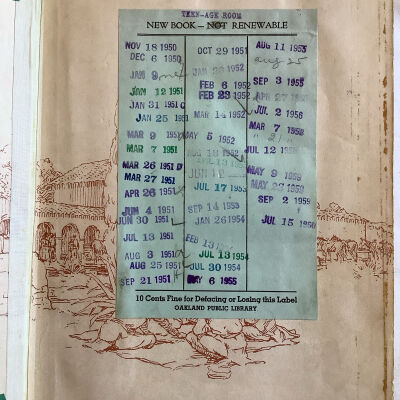 TEEN-AGE ROOM
NEW BOOK — NOT RENEWABLE
NOV 18 1950
DEC 6 1950
JAN 9
JAN 12 1951
JAN 31 1951
JAN 25 1951
MAR 9 1951
MAR 7 1951
MAR 26 1951
MAR 27 1951
APR 26 1951
JUN 4 1951
JUN 30 1951
JUL 13 1951
AUG 3 1951
AUG 25 1951
SEP 21 1951
OCT 29 1951
JAN 26 1952
FEB 6 1952
FEB 23 1952
MAR 14 1952
MAY 5 1952
JUL 17 1953
SEP 14 1953
JAN 26 1954
FEB 13
JUL 13 1954
JUL 30 1954
MAY 6 1955
AUG 11 1955
aug 25
SEP 3 1955
APR 27
JUL 2 1956
MAR 7 1958
" 21 "
JUL 12 1958
MAY 9 1959
MAY 23 1959
SEP 2 1959
JUL 15 1960
10 Cents Fine for Defacing or Losing this Label
OAKLAND PUBLIC LIBRARY